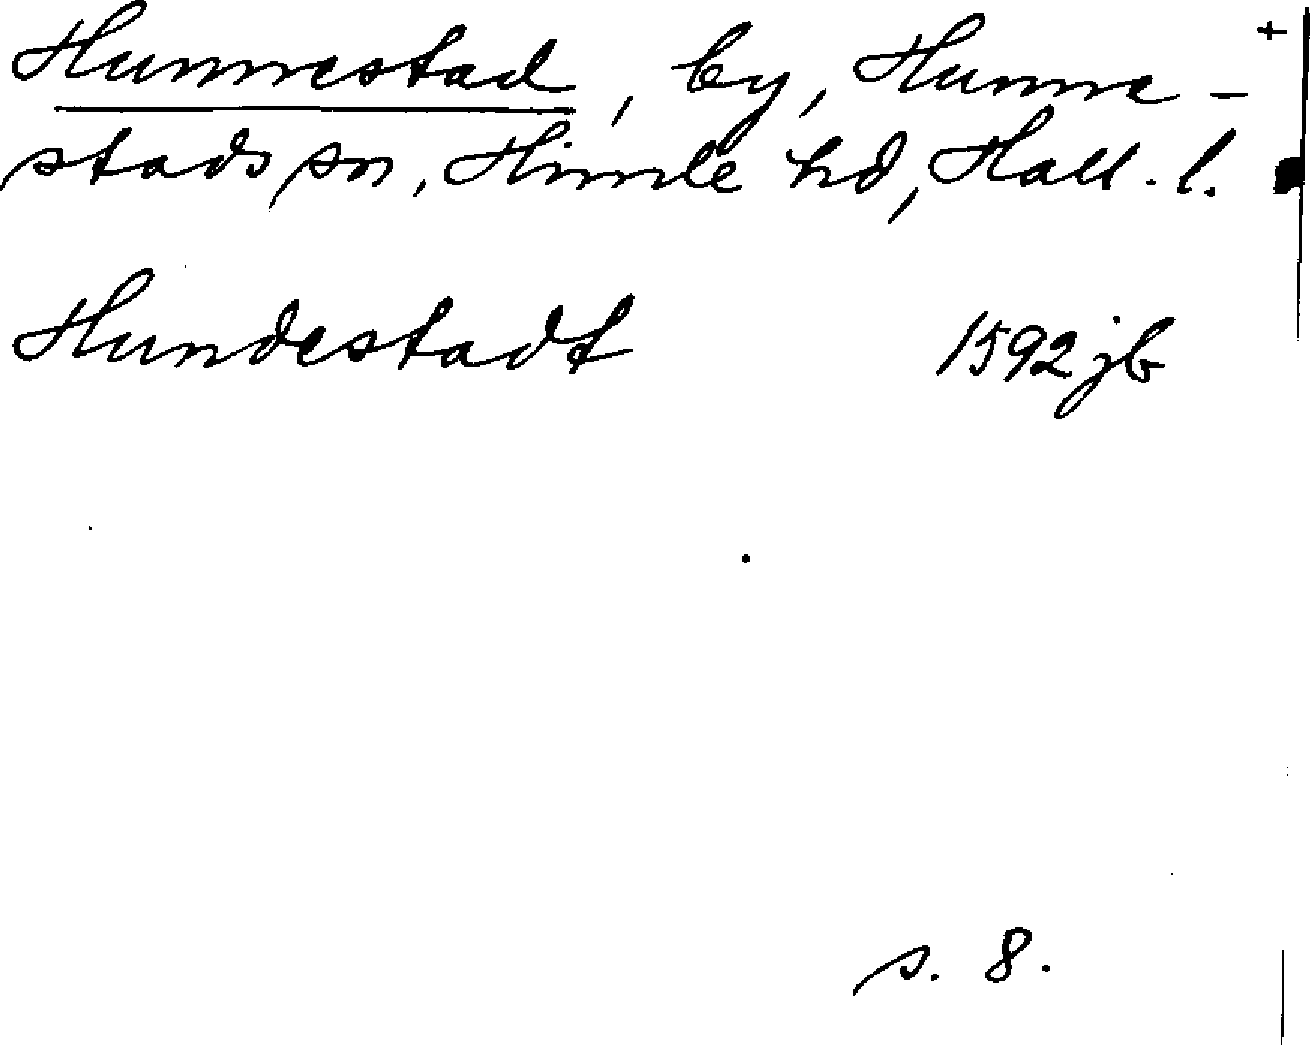 Hunnestad, by, Hunne-
stads sn, Himle hd, Hall. l.
Hundestadt 1592 jb
s. 8.